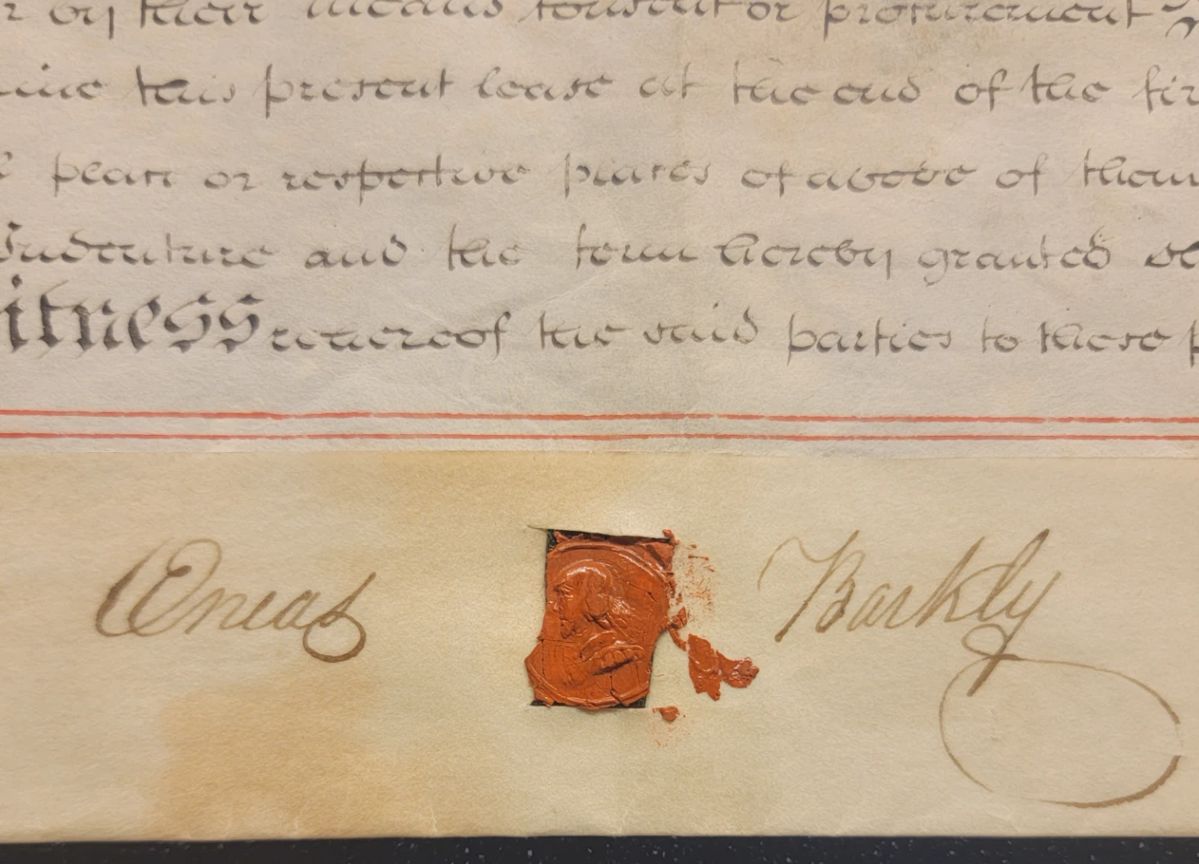 by their means consent or procurement
this present lease at the end of the fir
or respective of them
Indenture and the term hereby granted
itness whereof the said parties to these p
Æneas Barkly